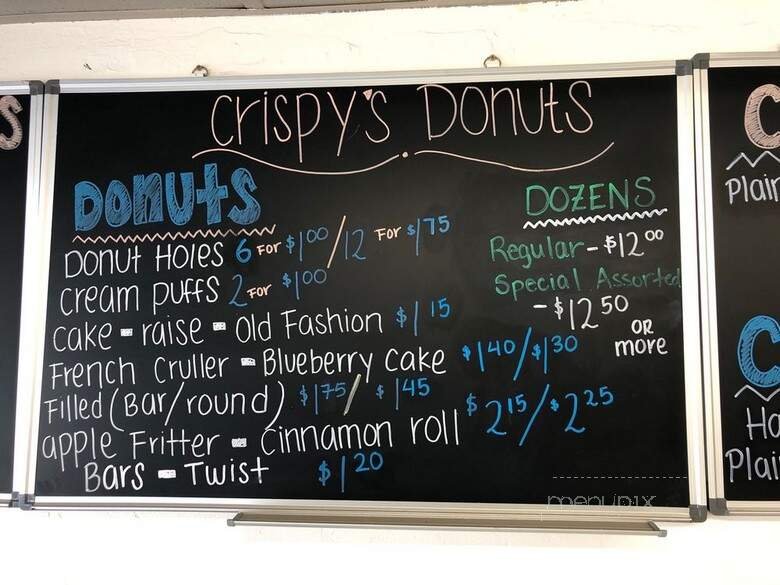 Crispy's Donuts
DONUTS
Donut Holes 6 FOR $1.00 / 12 FOR $1.75
Cream Puffs 2 FOR $1.00
Cake - raise - Old Fashion $1.15
French Cruller - Blueberry Cake $1.40/$1.30
Filled (Bar/round) $1.75/ $1.45
apple Fritter - Cinnamon roll $2.15/$2.25
Bars - Twist $1.20
DOZENS
Regular - $12.00
Special Assorted
- $12.50
OR
more
S
C
Plain
C
Ha
Plai
menupix